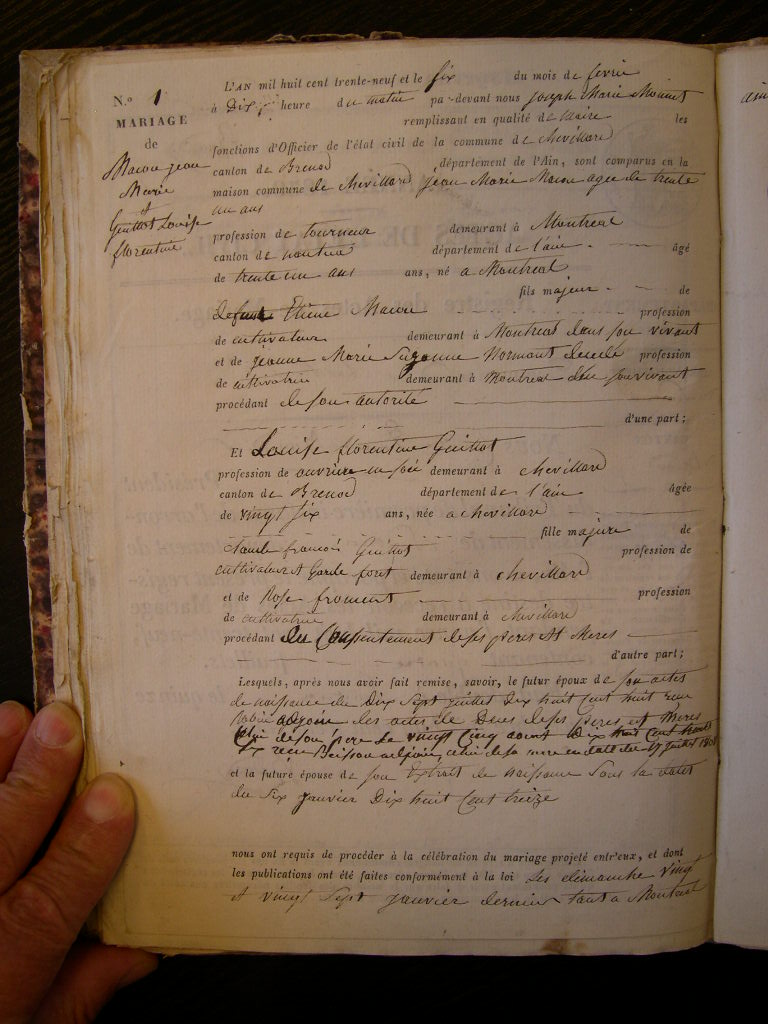 N.º 1
MARIAGE
de
Macon jean
Marie
et
Guittot Louise
florentine
L'AN mil huit cent trente-neuf et le six du mois de fevrie
à Dix heure du matin par-devant nous joseph Marie
remplissant en qualité de Maire les
fonctions d'Officier de l'état civil de la commune de chevillard
canton de Brenod département de l'Ain, sont comparus en la
maison commune de chevillard jean Marie Macon agee de trente
un ans
profession de tourneur demeurant à Montreal
canton de nantua département de l'ain âgé
de trente un ans ans, né a Montreal
fils majeur de
defunt Etiene Macon profession
de cultivateur demeurant à Montreal dans son vivant
et de jeanne Marie Suzanne Normant decedé profession
de cultivatrice demeurant à Montreal dans son vivant
procédant de son autorité
d'une part;
Et Louise florentine Guittot
profession de ouvrière en soie demeurant à chevillard
canton de Brenod département de l'ain âgée
de vingt six ans, née a chevillard
fille majeure de
claude francois Guittot profession de
cultivateur et Garde foret demeurant à chevillard
et de Rose froment profession
de cultivatrice demeurant à chevillard
procédant du Consentement de ses peres et Meres
d'autre part;
Lesquels, après nous avoir fait remise, savoir, le futur époux de son actes
de naissance du Dix Sept juillet Dix huit Cent huit
adjoin des actes de Deces de ses peres et Meres
de son pere Le vingt Cinq aout Dix huit Cent
adjoin, celui de sa mere en date du 17 juillet
et la future épouse de son Extrait de naissance Sous la date
du Six janvier Dix huit Cent treize
nous ont requis de procéder à la célébration du mariage projeté entr'eux, et dont
les publications ont été faites conformément à la loi les dimanche vingt
et vingt Sept janvier dernier tant a Montreal